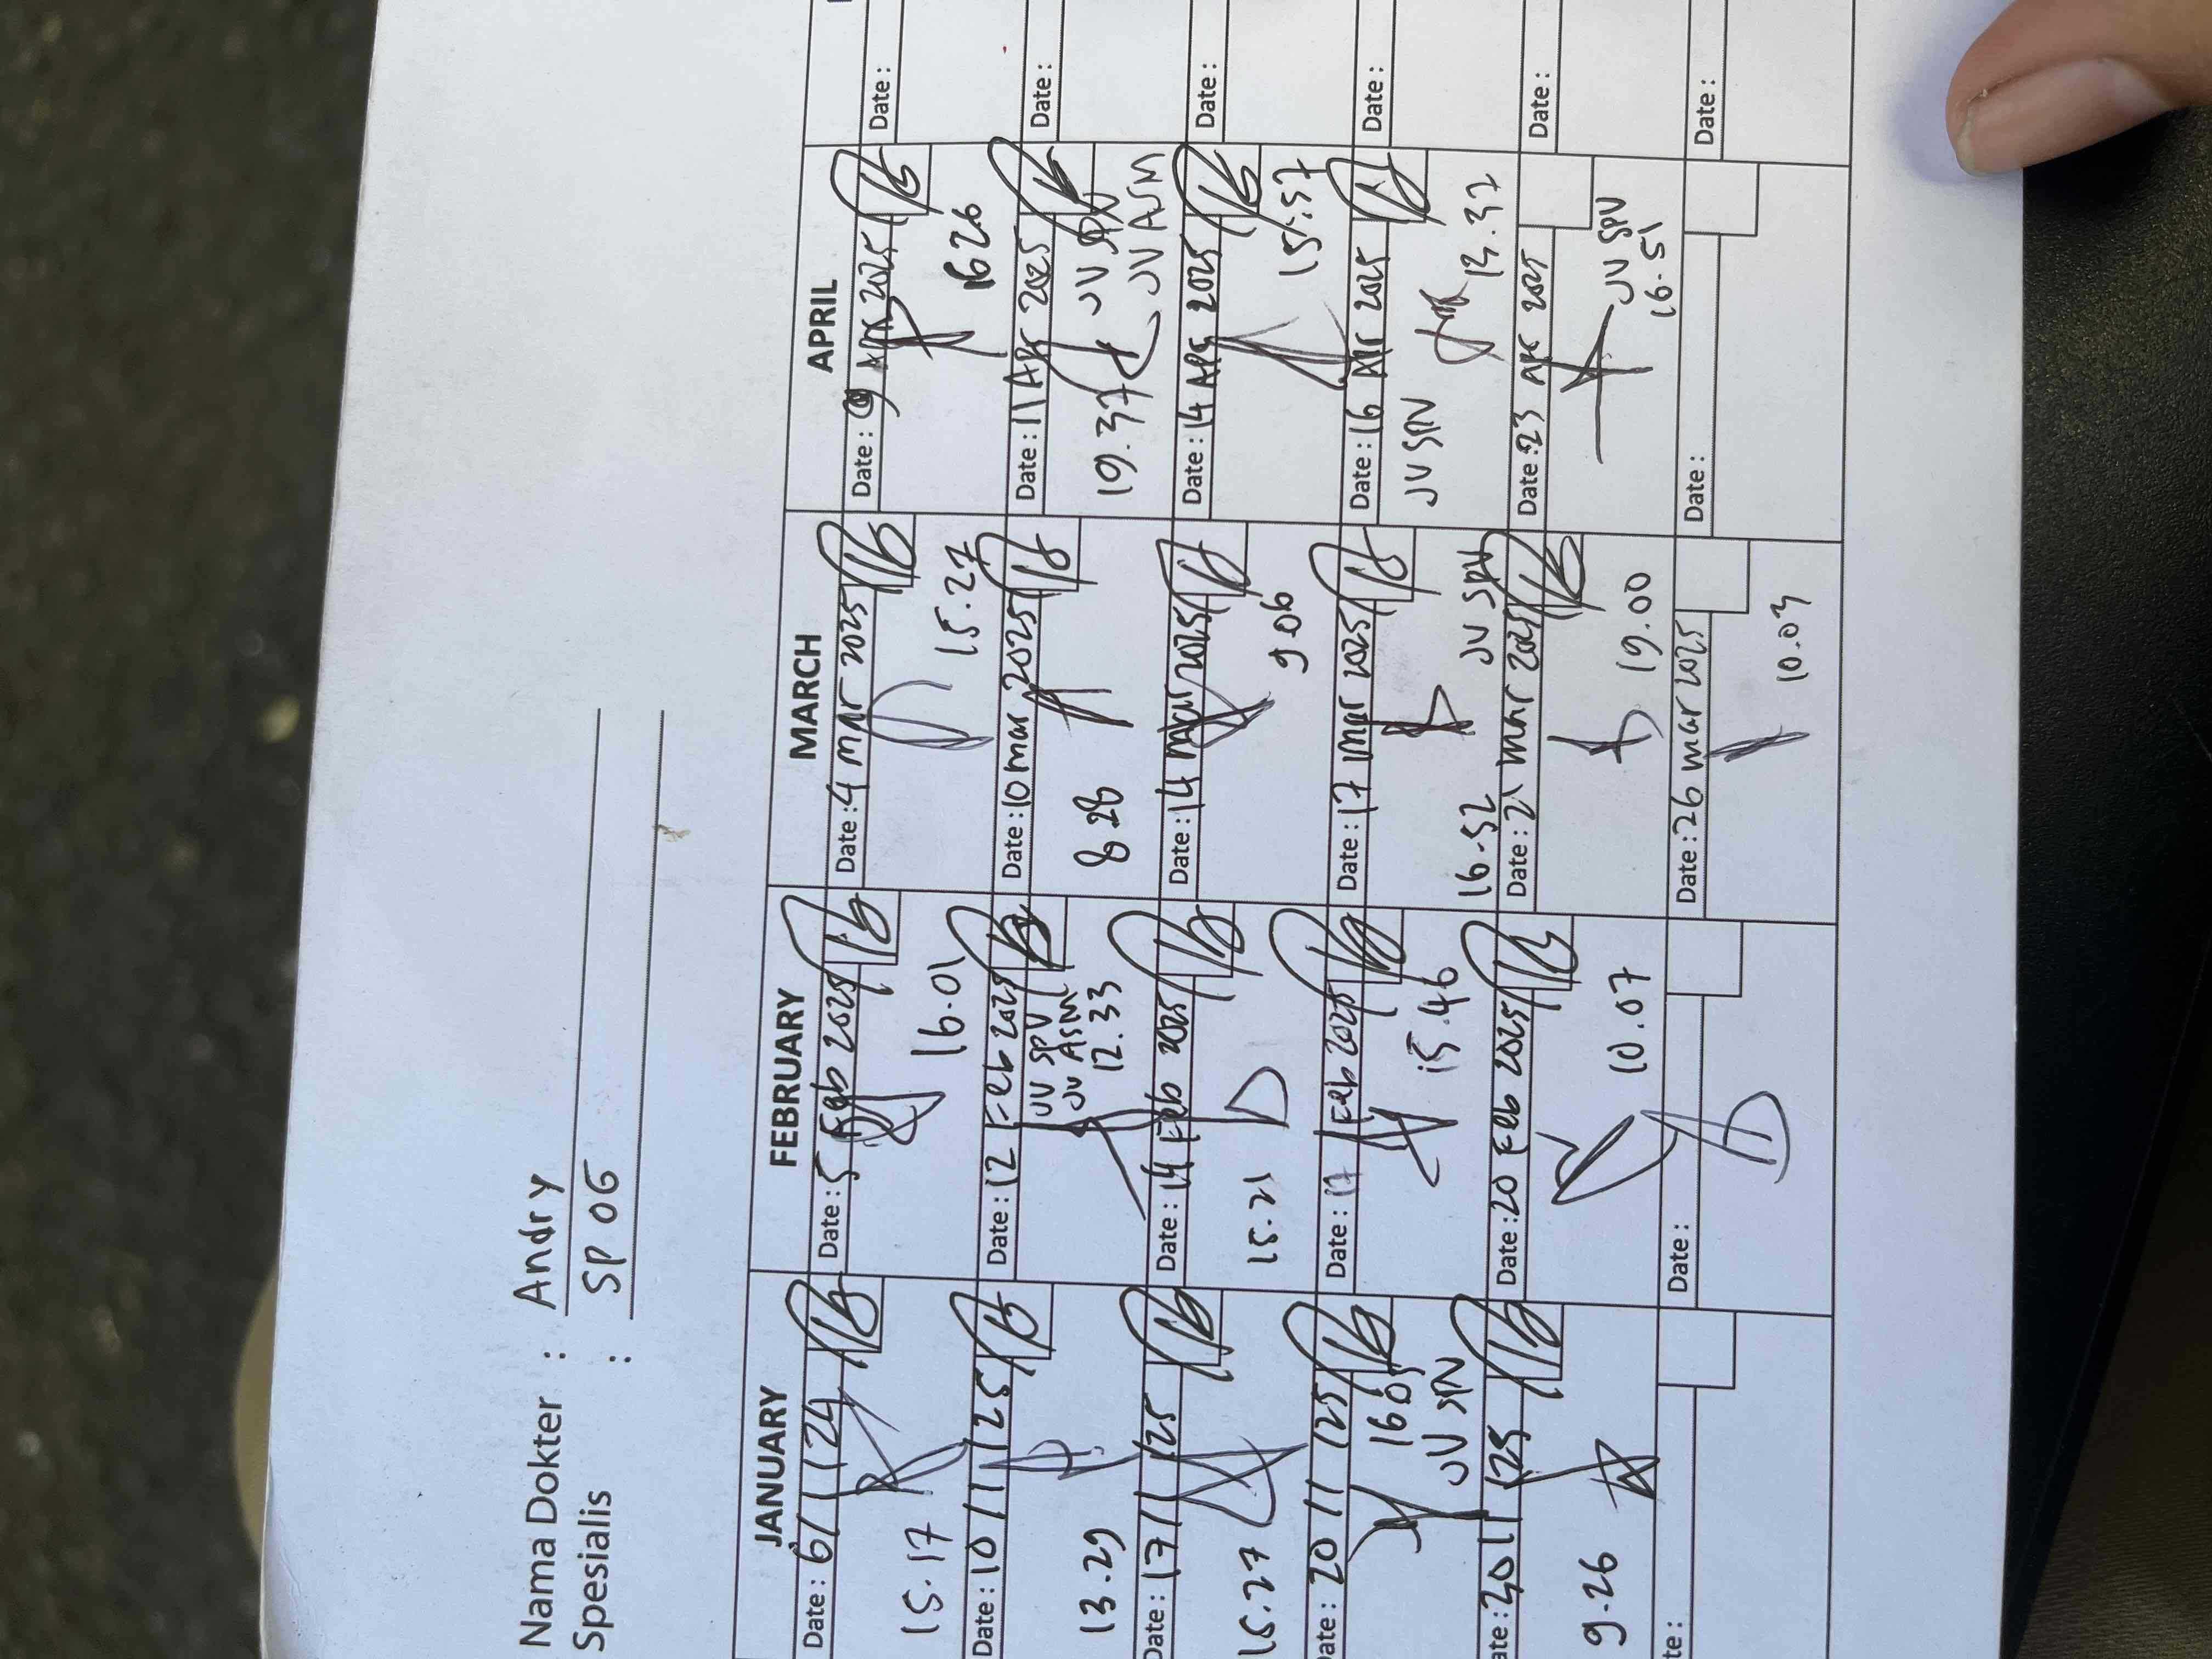 Nama Dokter : Andry
Spesialis : SP OG
JANUARY FEBRUARY MARCH APRIL
Date : 6/1/24 Date : 5 Feb 2025 Date : 4 mar 2025 Date : 9 Apr 2025 Date :
15.17 16.01 15.27 1626
Date : 10/1/25 Date : 12 Feb 2025 Date : 10 mar 2025 Date : 11 Apr 2025 Date :
13.29 JV SPV JV ASM 12.33 8 28 19.37 JV SPV JV ASM
Date : 17/1/25 Date : 14 Feb 2025 Date : 14 mar 2025 Date : 14 Apr 2025 Date :
15.27 15.21 9.06 15.57
Date : 20/1/25 Date : 17 Feb 2025 Date : 17 mar 2025 Date : 16 Apr 2025 Date :
1605 JV SPV 15.46 16.52 JV SPV JV SPV 13.37
ate : 30/1/25 Date : 20 Feb 2025 Date : 21 mar 2025 Date : 23 Apr 2025 Date :
9.26 10.07 19.00 JV SPV 16.51
te : Date : Date : 26 mar 2025 Date : Date :
10.03